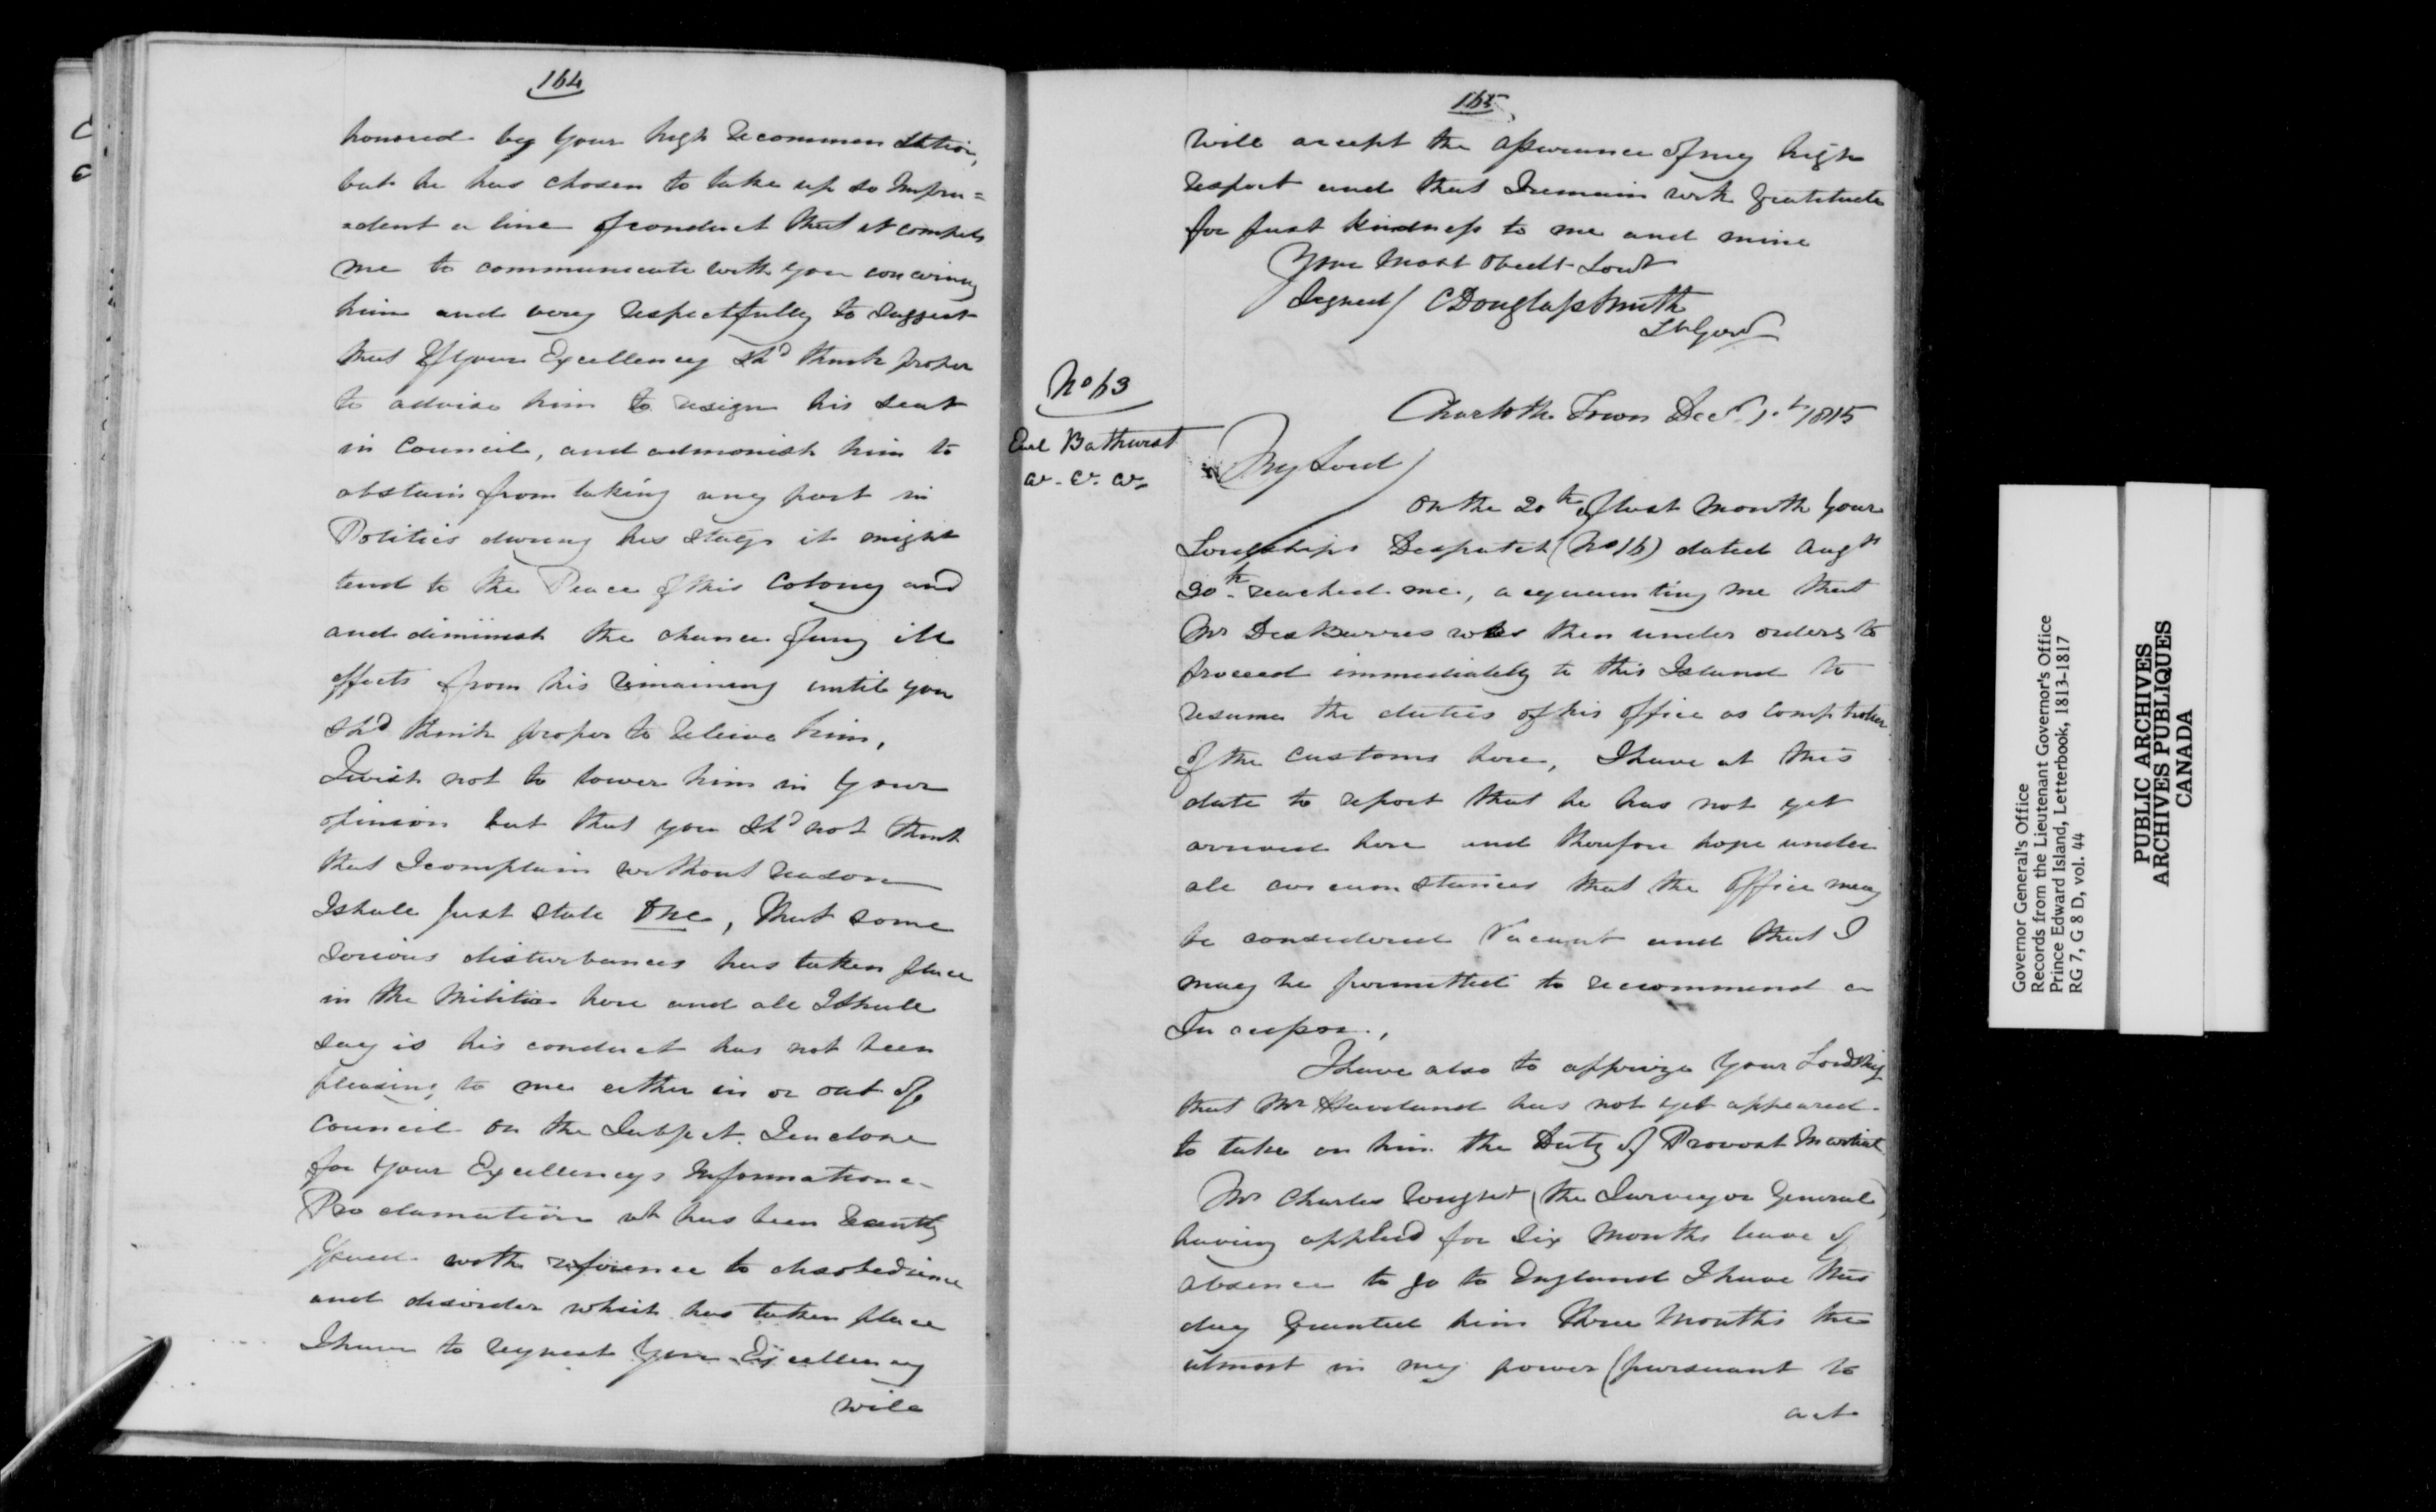 164
honored by Your high Recommendation,
but he has chosen to take up so Impru=
=dent a line of conduct that it compels
me to communicate with you concerning
him and very respectfully to Suggest
that If your Excellency shd think proper
to advise him to resign his Seat
in Council, and admonish him to
abstain from taking any part in
Politics during his stay it might
tend to the Peace of this Colony and
and diminish the chance of any ill
effects from his remaining until you
shd think proper to releive him,
I wish not to lower him in Your
opinion but that you shd not think
that I complain without reason
I shall just state One, that some
serious disturbances has taken place
in the Militia here and all I shall
say is his conduct has not been
pleasing to me either in or out of
Council on the Subject. I enclose
for Your Excellencys Information a
Proclamation wh has been recently
issued with reference to disobedience
and disorder which has taken place
I have to request Your Excellency
will
165
will accept the assurance of my high
respect and that I remain with Gratitude
for past kindness to me and mine
Your most obedt Servt
Signed/ C Douglass Smith
Lt Govr
No 63
Earl Bathurst
&. &. &.
Charlotte Town Decr 1st 1815
My Lord/
On the 20th of last Month Your
Lordships Despatch (No 16) dated Augst
30th reached me, acquainting me that
Mr DesBarres was then under orders to
proceed immediately to this Island to
resume the duties of his office as Comptroller
of the Customs here, I have at this
date to report that he has not yet
arrived here and therefore hope under
all circumstances that the Office may
be considered Vacant and that I
may be permitted to recommend a
Successor.,
I have also to apprize Your Lordship
that Mr Haviland has not yet appeared
to take on him the Duty of Provost Marshal
Mr Charles Wright (the Surveyor General)
having applied for Six Months leave of
absence to go to England I have this
day Granted him three Months the
utmost in my power (pursuant to
act
Governor General's Office
Records from the Lieutenant Governor's Office
Prince Edward Island, Letterbook, 1813-1817
RG 7, G 8 D, vol. 44
PUBLIC ARCHIVES
ARCHIVES PUBLIQUES
CANADA